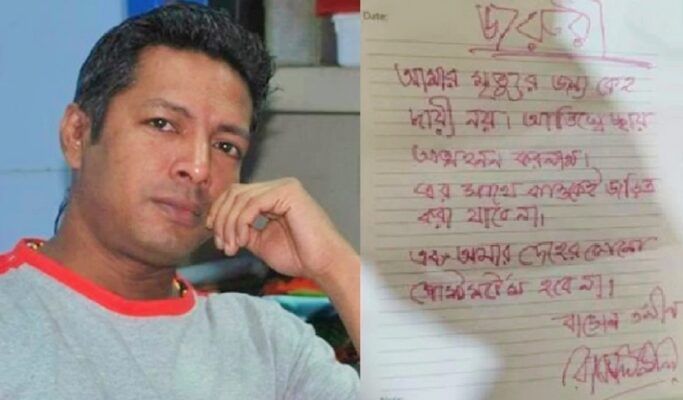 Date:
জরুরী
আমার মৃত্যুর জন্য কেহ
দায়ী নয়। আমি স্বেচ্ছায়
আত্মহনন করলাম।
এর সাথে কাউকেই জড়িত
করা যাবে না।
এবং আমার দেহের কোনো
পোস্টমর্টেম হবে না।